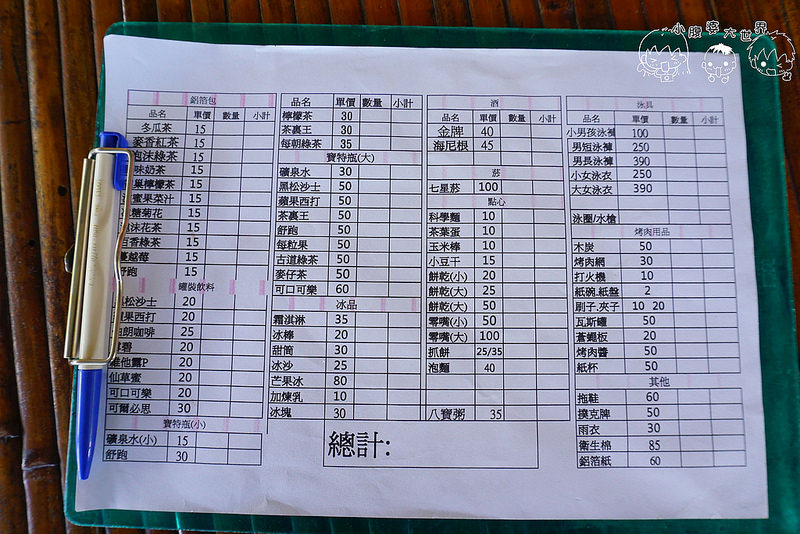 小腹婆大世界
鋁箔包
品名 單價 數量 小計
冬瓜茶 15
麥香紅茶 15
泡沫綠茶 15
味奶茶 15
巢檸檬茶 15
蜜果菜汁 15
糖菊花 15
沫花茶 15
香綠茶 15
蔓越莓 15
舒跑 15
罐裝飲料
松沙士 20
果西打 20
朗咖啡 25
碧 20
維他露P 20
仙草蜜 20
可口可樂 20
可爾必思 30
寶特瓶(小)
礦泉水(小) 15
舒跑 30
品名 單價 數量 小計
檸檬茶 30
茶裏王 30
每朝綠茶 35
寶特瓶(大)
礦泉水 30
黑松沙士 50
蘋果西打 50
茶裏王 50
舒跑 50
每粒果 50
古道綠茶 50
麥仔茶 50
可口可樂 60
冰品
霜淇淋 35
冰棒 20
甜筒 30
冰沙 25
芒果冰 80
加煉乳 10
冰塊 30
酒
品名 單價 數量 小計
金牌 40
海尼根 45
菸
七星菸 100
點心
科學麵 10
茶葉蛋 10
玉米棒 10
小豆干 15
餅乾(小) 20
餅乾(大) 25
餅乾(大) 50
零嘴(小) 50
零嘴(大) 100
抓餅 25/35
泡麵 40
八寶粥 35
總計:
泳具
品名 單價 數量 小計
小男孩泳褲 100
男短泳褲 250
男長泳褲 390
小女泳衣 250
大女泳衣 390
泳圈/水槍
烤肉用品
木炭 50
烤肉網 30
打火機 10
紙碗.紙盤 2
刷子.夾子 10 20
瓦斯罐 50
蒼蠅板 20
烤肉醬 50
紙杯 50
其他
拖鞋 60
撲克牌 50
雨衣 30
衛生棉 85
鋁箔紙 60